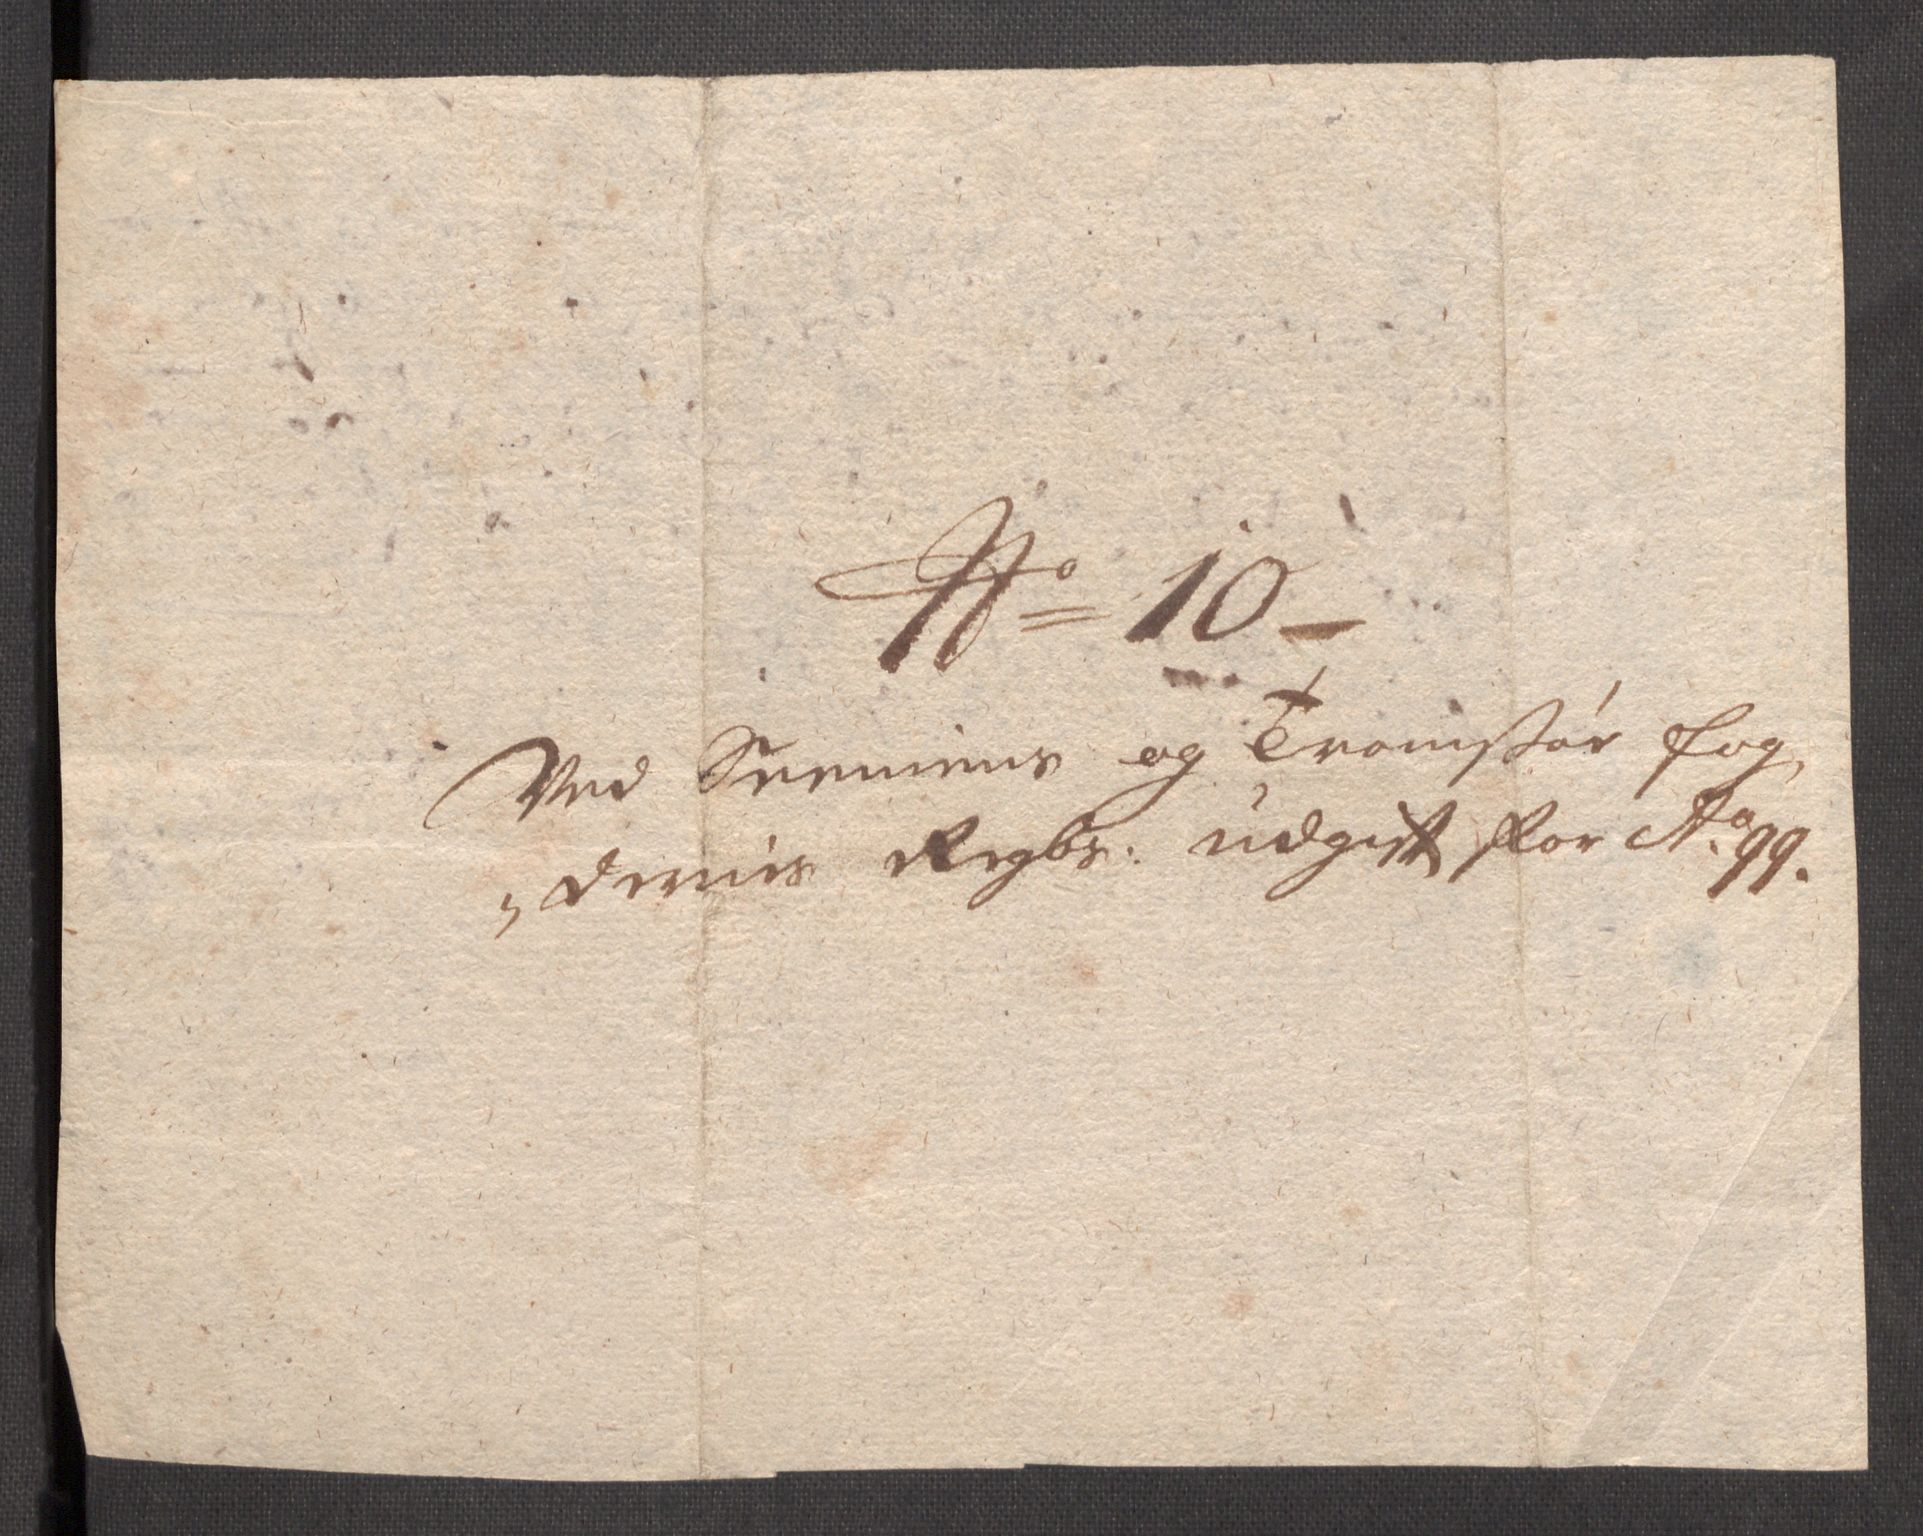 No 10
Ved Senniens og Tromsøes fog
,, deries Regbs: udgift for Ao 99.